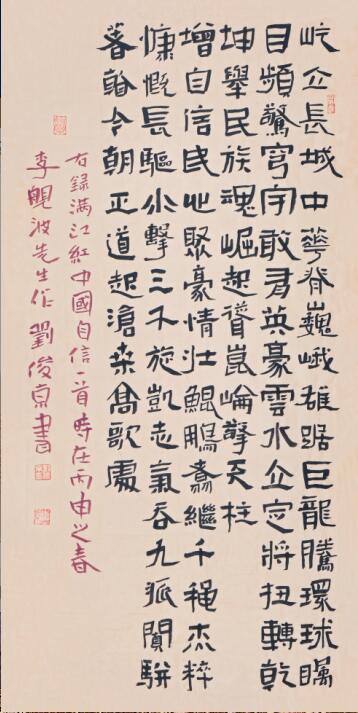 屹立長城中華脊巍峨雄踞巨龍騰環球矚
目頻驚穹宇敢君英豪雲水立定將扭轉乾
坤舉民族魂崛起聳崑崙擎天柱
增自信民心聚豪情壯鯤鵬翥繼千杰粹
慷慨長驅水擊三千施凱志氣吞九狐閬駢
今朝正道起滄桑高歌處
右錄满江紅中國自信一首時在丙申之春
李鲲波先生作劉俊京書